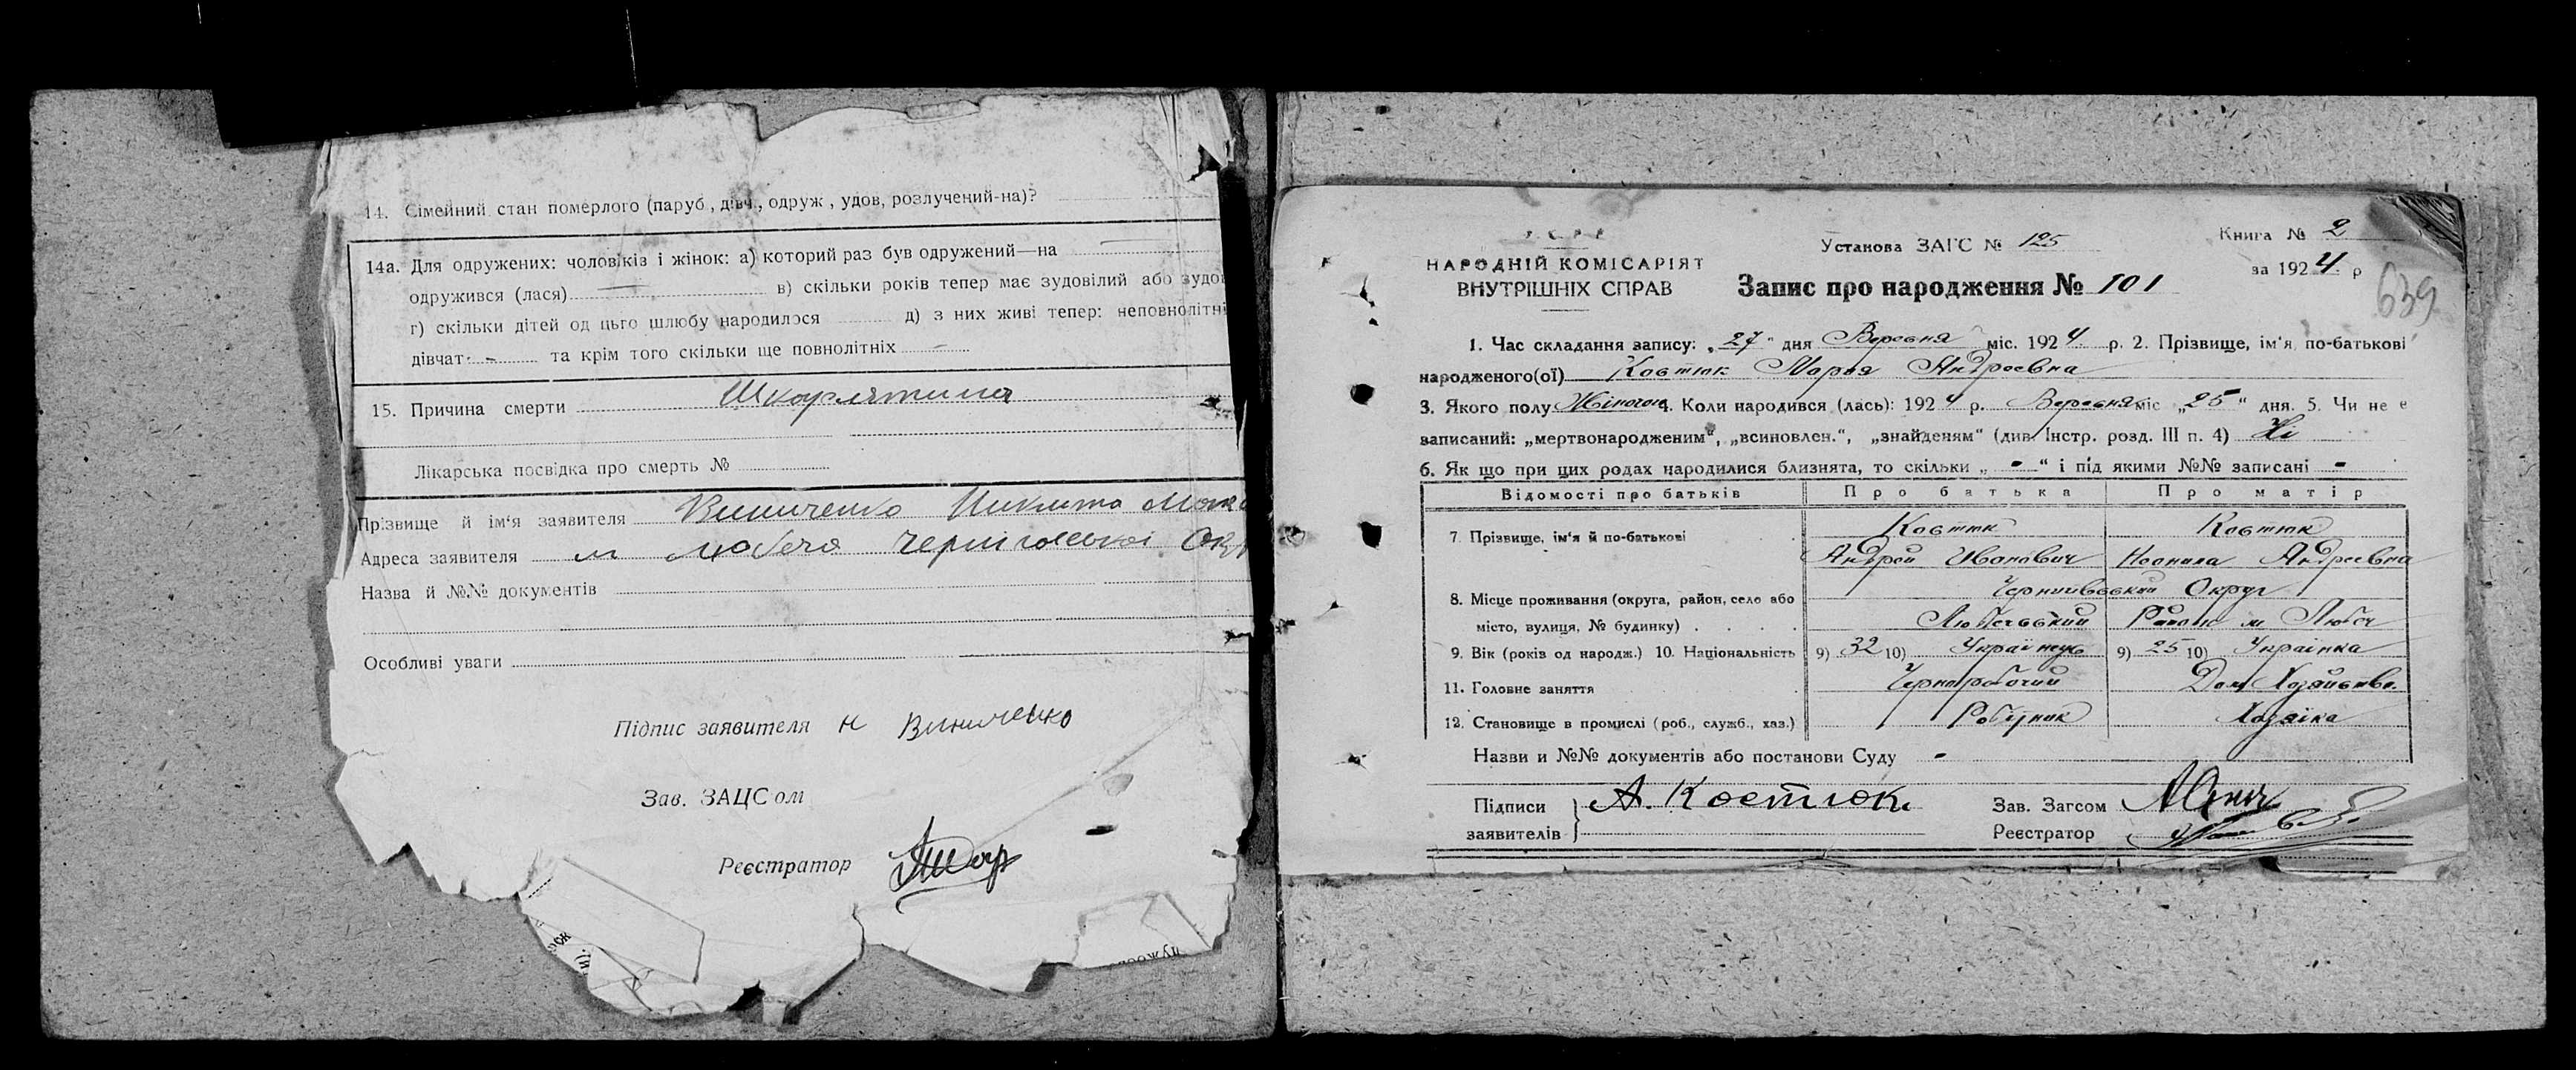 14. Сімейний стан померлого (паруб., дівч., одруж., удов, розлучений-на)?
14а. Для одружених: чоловіків і жінок: а) которий раз був одружений—на
одружився (лася) в) скільки років тепер має зудовілий або
г) скільки дітей од цьго шлюбу народилося д) з них живі тепер:
дівчат - та крім того скільки ще повнолітніх -
15. Причина смерти Шкарлятина
Лікарська посвідка про смерть №
Прізвище й ім'я заявителя Виниченко Никита
Адреса заявителя м Любеча Чернігівської
Назва й №№ документів
Особливі уваги
Підпис заявителя Н Виниченко
Зав. ЗАЦСом
Реєстратор
Установа ЗАГС № 125
Книга № 2
НАРОДНІЙ КОМІСАРІЯТ
ВНУТРІШНІХ СПРАВ
Запис про народження № 101
за 1924 р
639
1. Час складання запису: „27" дня Вересня міс. 1924 р. 2. Прізвище, ім'я, по-батькові
народженого(ої) Костюк Марья Андреевна
3. Якого полу Жіночого 4. Коли народився (лась): 1924 р. Вересня міс „25" дня. 5. Чи не є
записаний: „мертвонародженим", „всиновлен.", „знайденям" (див. Інстр. розд. III п. 4) Ні
6. Як що при цих родах народилися близнята, то скільки „ - " і під якими №№ записані -
Відомості про батьків Про батька Про матір
7. Прізвище, ім'я й по-батькові Костюк Костюк
Андрей Иванович Неонила Андреевна
8. Місце проживання (округа, район, село або Чернигівський Округ
місто, вулиця, № будинку) Любечський Район м Любеч
9. Вік (років од народж.) 10. Національність 9) 32 10) Українець 9) 25 10) Українка
11. Головне заняття Чернорабочий Дом Хозяйство.
12. Становище в промислі (роб., служб., хаз.) Робітник Хозяїка
Назви и №№ документів або постанови Суду -
Підписи
заявителів
А. Костюк
Зав. Загсом
Реєстратор